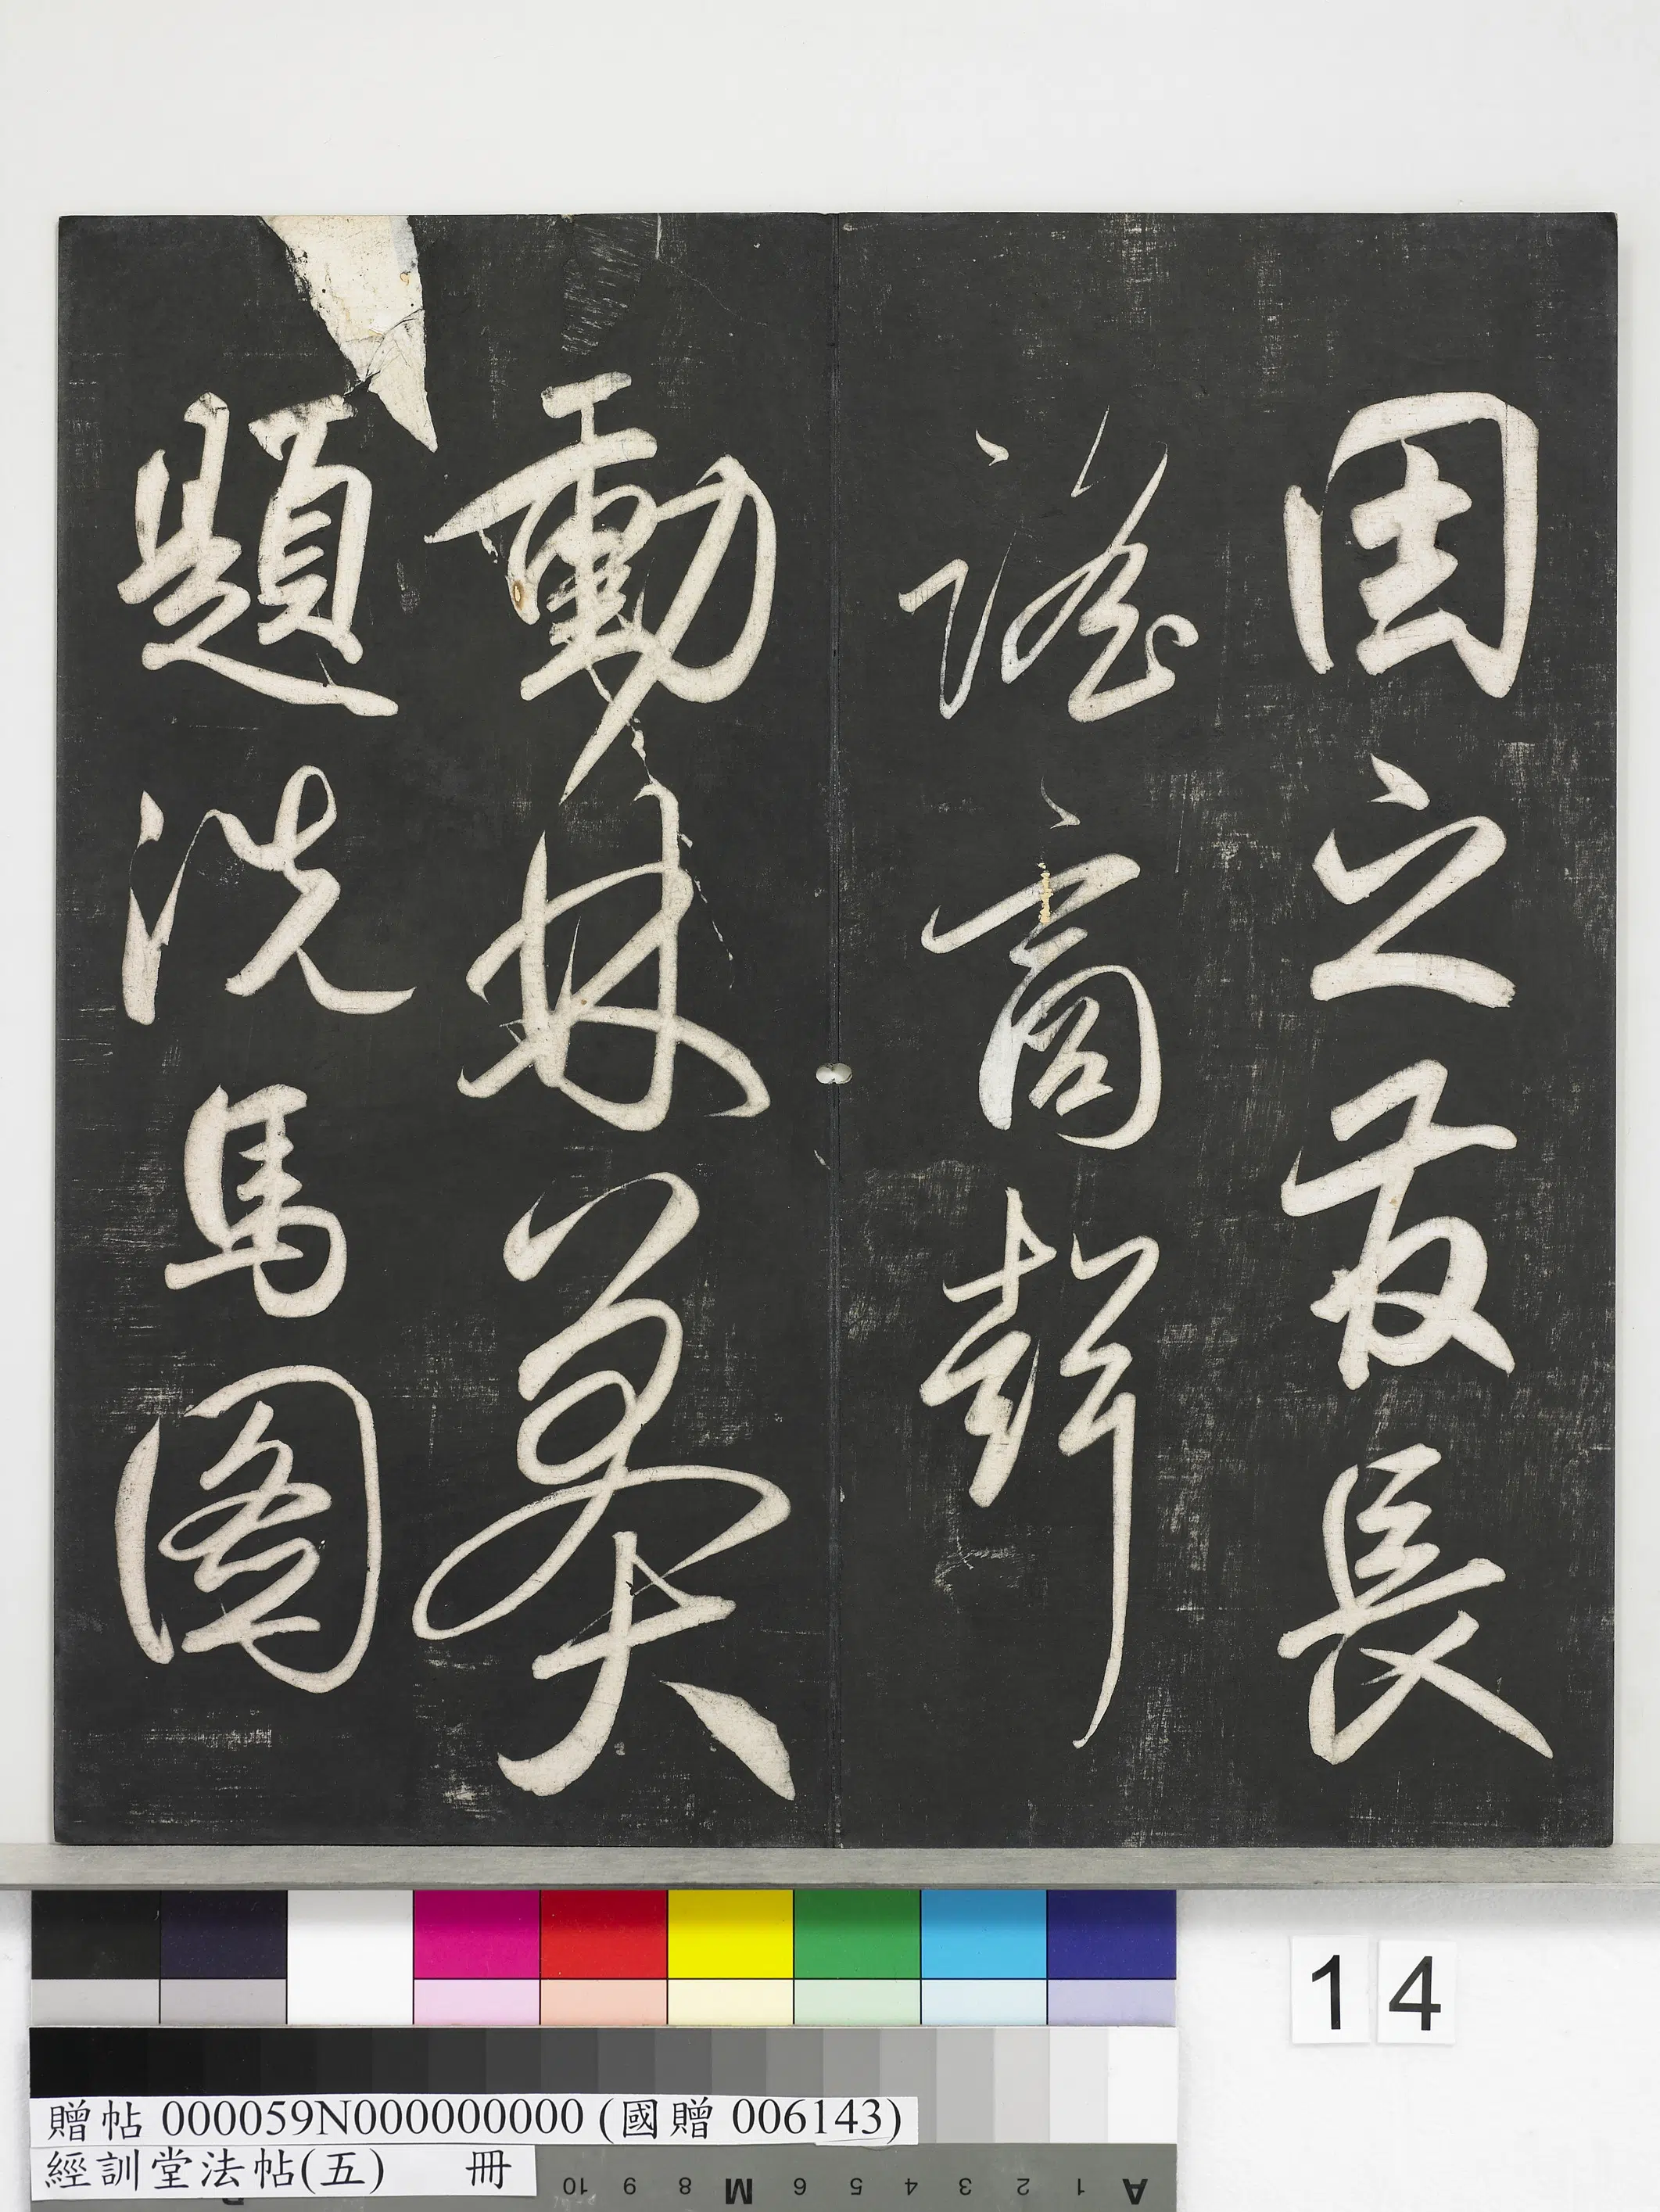 因之發長
謠商聲
動林
題洗馬圖
14
贈帖 000059N000000000 (國贈 006143)
經訓堂法帖(五) 冊
10 9 8 M 6 5 4 3 2 1 A